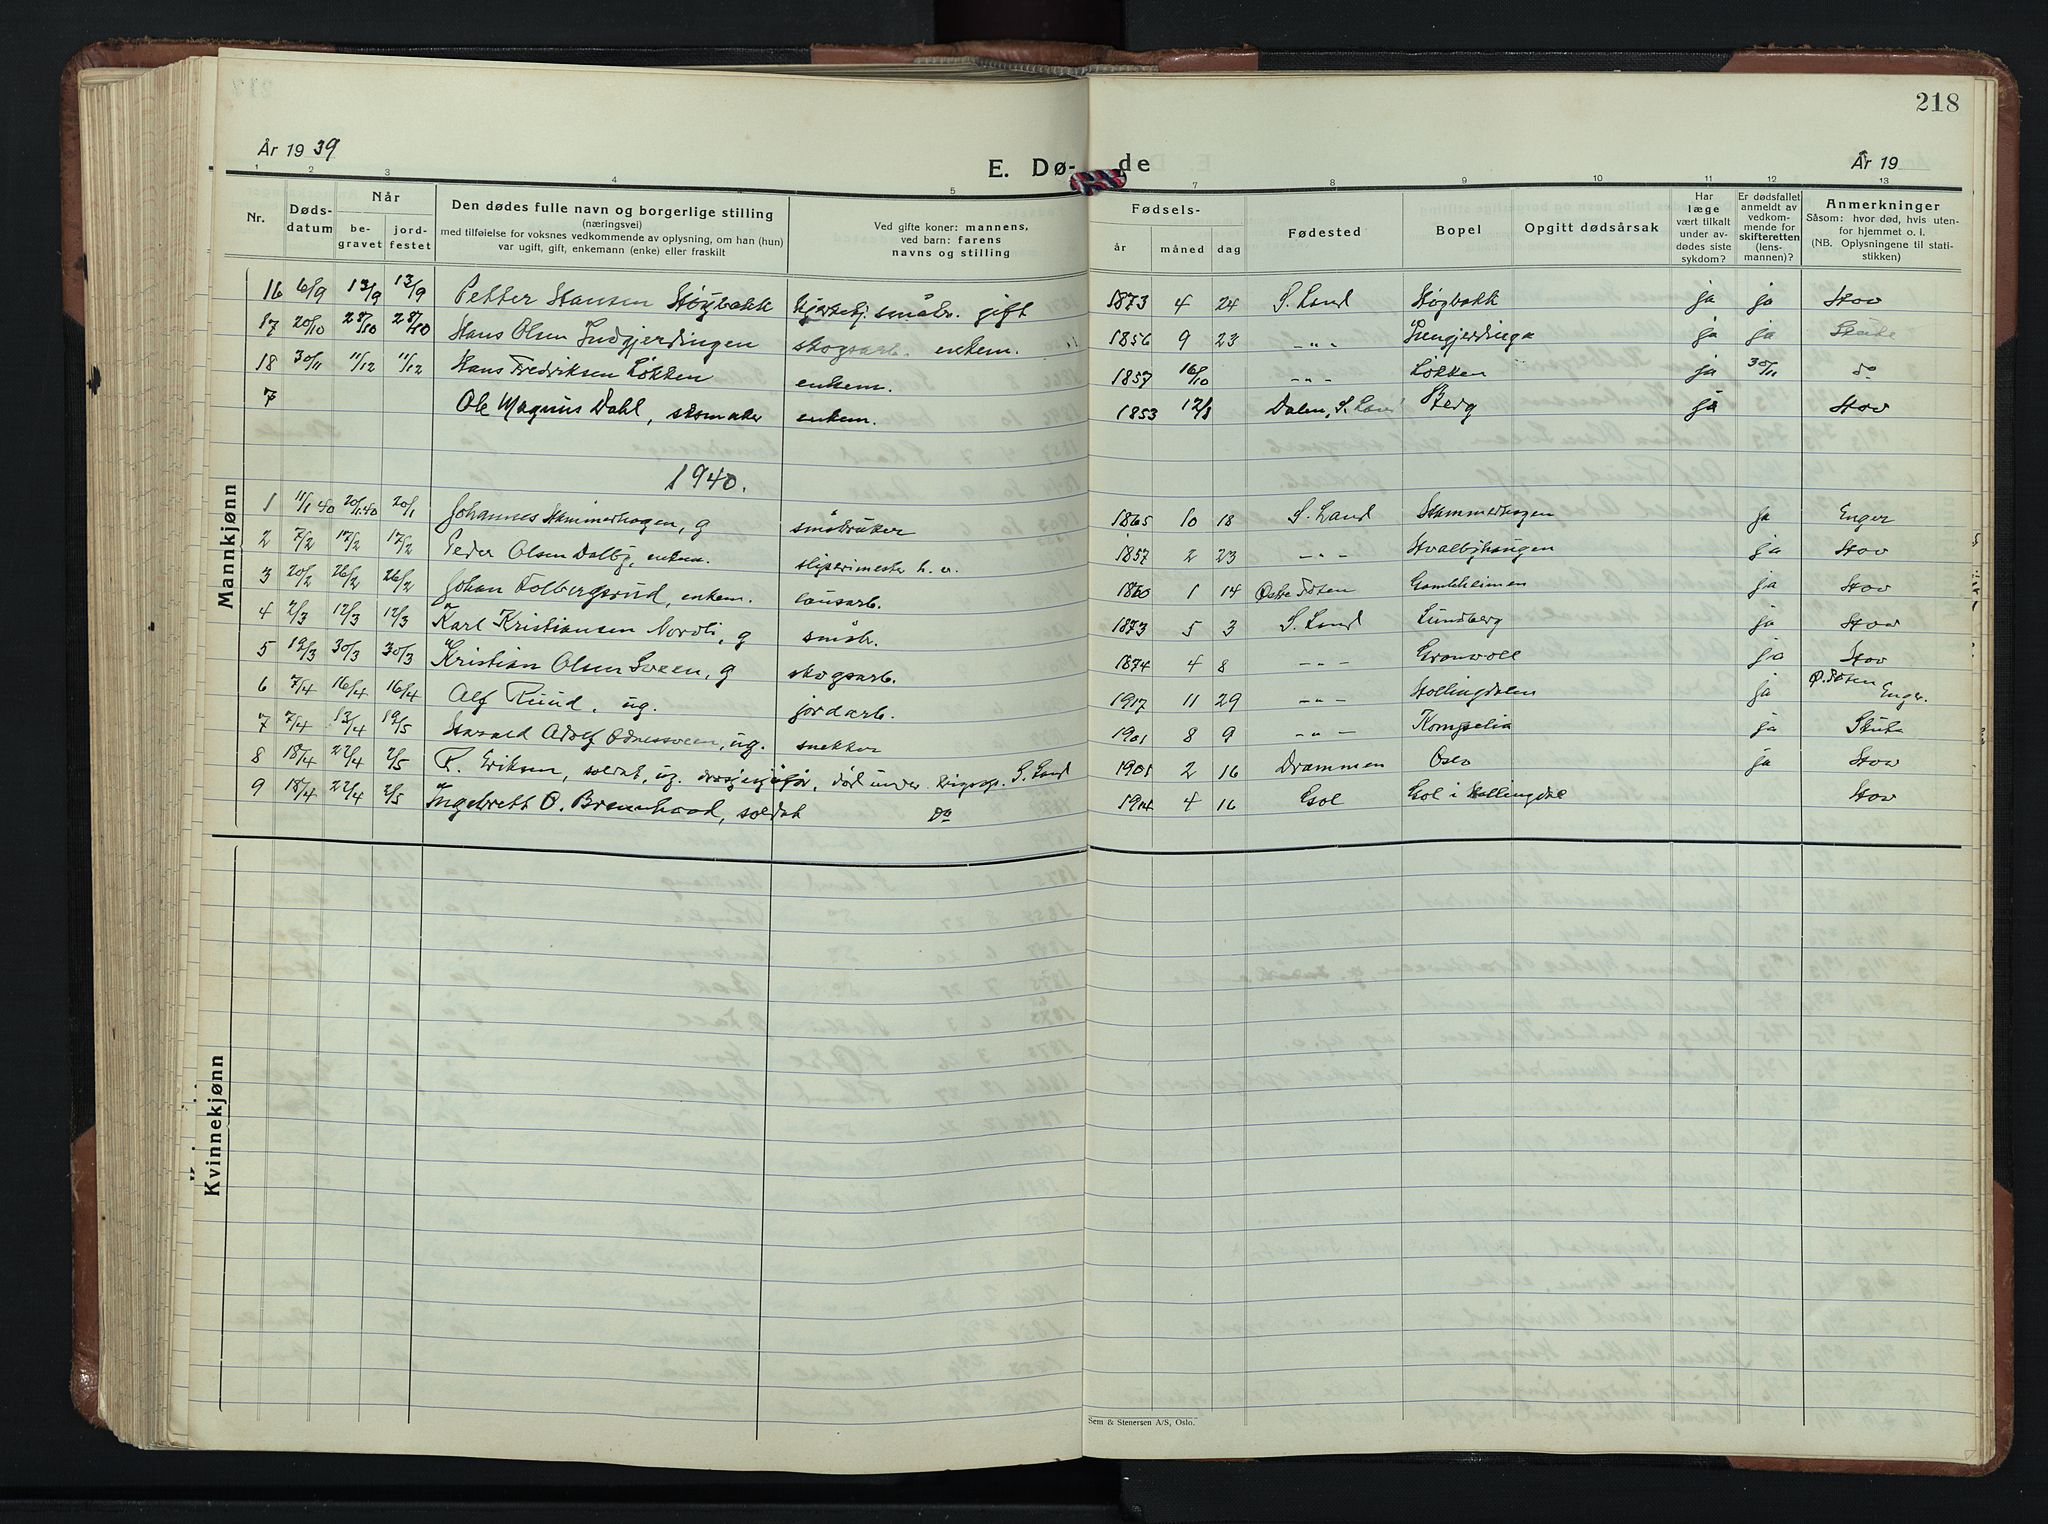 218
År 19 39
E. Dø-
de
År 19
1 2 3 4 5 7 8 9 10 11 12 13
Nr. Døds- datum Når be- gravet jord- festet Den dødes fulle navn og borgerlige stilling (næringsvei) med tilføielse for voksnes vedkommende av oplysning, om han (hun) var ugift, gift, enkemann (enke) eller fraskilt Ved gifte koner: mannens, ved barn: farens navns og stilling Fødsels- år måned dag Fødested Bopel Opgitt dødsårsak Har læge vært tilkalt under av- dødes siste sykdom? Er dødsfallet anmeldt av vedkom- mende for skifteretten (lens- mannen)? Anmerkninger Såsom: hvor død, hvis uten- for hjemmet o. l. (NB. Oplysningene til stati- stikken)
Mannkjønn
16 6/9 13/9 13/9 Petter Hansen Høgbakk småbr. gift 1873 4 24 S. Land Høgbakk ja ja Hov
17 20/10 28/10 28/10 Hans Olsen Lundgjerdingen skogsarb. enkem. 1856 9 23 -"- ja ja
18 30/11 11/12 11/12 Hans Fredriksen Løkken enkem. 1857 16/10 -"- Løkken ja 30/11 do
7 Ole Magnus Dahl, skomaker enkem. 1853 12/3 Dalen, S. Land Berg ja Hov
1940.
1 11/1 40 20/1.40 20/1 Johannes Hammerhagen, g småbruker 1865 10 18 S. Land Hammerhagen ja Enger
2 7/2 17/2 17/2 Peder Olsen Dalby, enkem. sliperimester 1857 2 23 -"- Hvalbyhaugen ja Hov
3 20/2 26/2 26/2 Johan Tolbergsrud, enkem. løusarb. 1860 1 14 Østre Toten Gamleheimen ja Hov
4 2/3 12/3 12/3 Karl Kristiansen Nordli, g småbr. 1873 5 3 S. Land Lundberg ja Hov
5 19/3 30/3 30/3 Kristian Olsen Sveen, g skogsarb. 1874 4 8 -"- Grønvoll ja Hov
6 7/4 16/4 16/4 Alf Ruud, ug. jordarb. 1917 11 29 -"- Hollingdalen ja Ø. Toten Enger
7 7/4 13/4 19/5 Harald Adolf Odnessveen, ug. snekker 1901 8 9 -"- Kompelia ja
8 18/4 22/4 2/5 R. Eriksen, soldat, ug. drosjesjåfør, død under krigsop. S. Land 1901 2 16 Drammen Oslo ja Hov
9 18/4 22/4 2/5 Ingebrett O. Brennhaad, soldat Do 1914 4 16 Gol Gol i Hallingdal Hov
Kvinnekjønn
Sem & Stenersen A/S, Oslo.